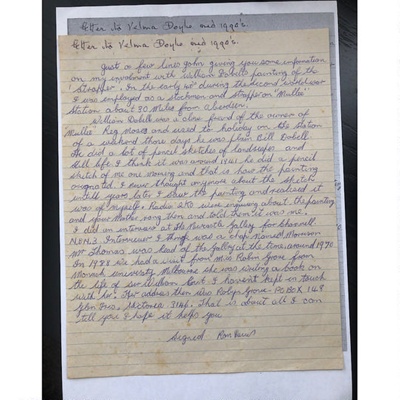 Letter to Velma Doyle mid 1990's.
Letter to Velma Doyle mid 1990's.
Just a few lines John giving you some information
on my involvment with William Dobell painting of the
"Strapper". In the early 40s during the second world war
I was employed as a stockman and strapper on "Mullee"
Station about 30 Miles from Aberdeen.
William Dobell was a close friend of the owner of
"Mullee" Reg Moses and used to holiday on the station
of a weekend those days he was plain Bill Dobell
He did a lot of pencil sketches of landscapes and
still life I think it was around 1941 he did a pencil
sketch of me one morning and that is how the painting
originated. I never thought anymore about the sketch
untill years later I saw the painting and realised it
was of myself. Radio 2KO were inquiring about the painting
and your Mother rang them and told them it was me.
I did an interview at the Newcastle Gallery for Channell
N.B.N.3 Interviewer I think was a chap named Morrison
Mr Thomas was head of the Gallery at the time around 1970
In 1978 we had a visit from Miss Robyn Grove from
Monash university Melbourne she was writing a book on
the life of Sir William but I havent kept in touch
with her. Her address then Miss Robyn Grove - PO BOX 148
Glen Iris, Victoria 3146. That is about all I can
tell you I hope it helps you
Signed Ron